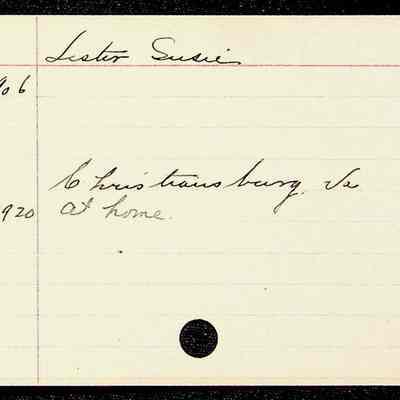 Lester Susie
906
Christiansburg. Va
920 at home.